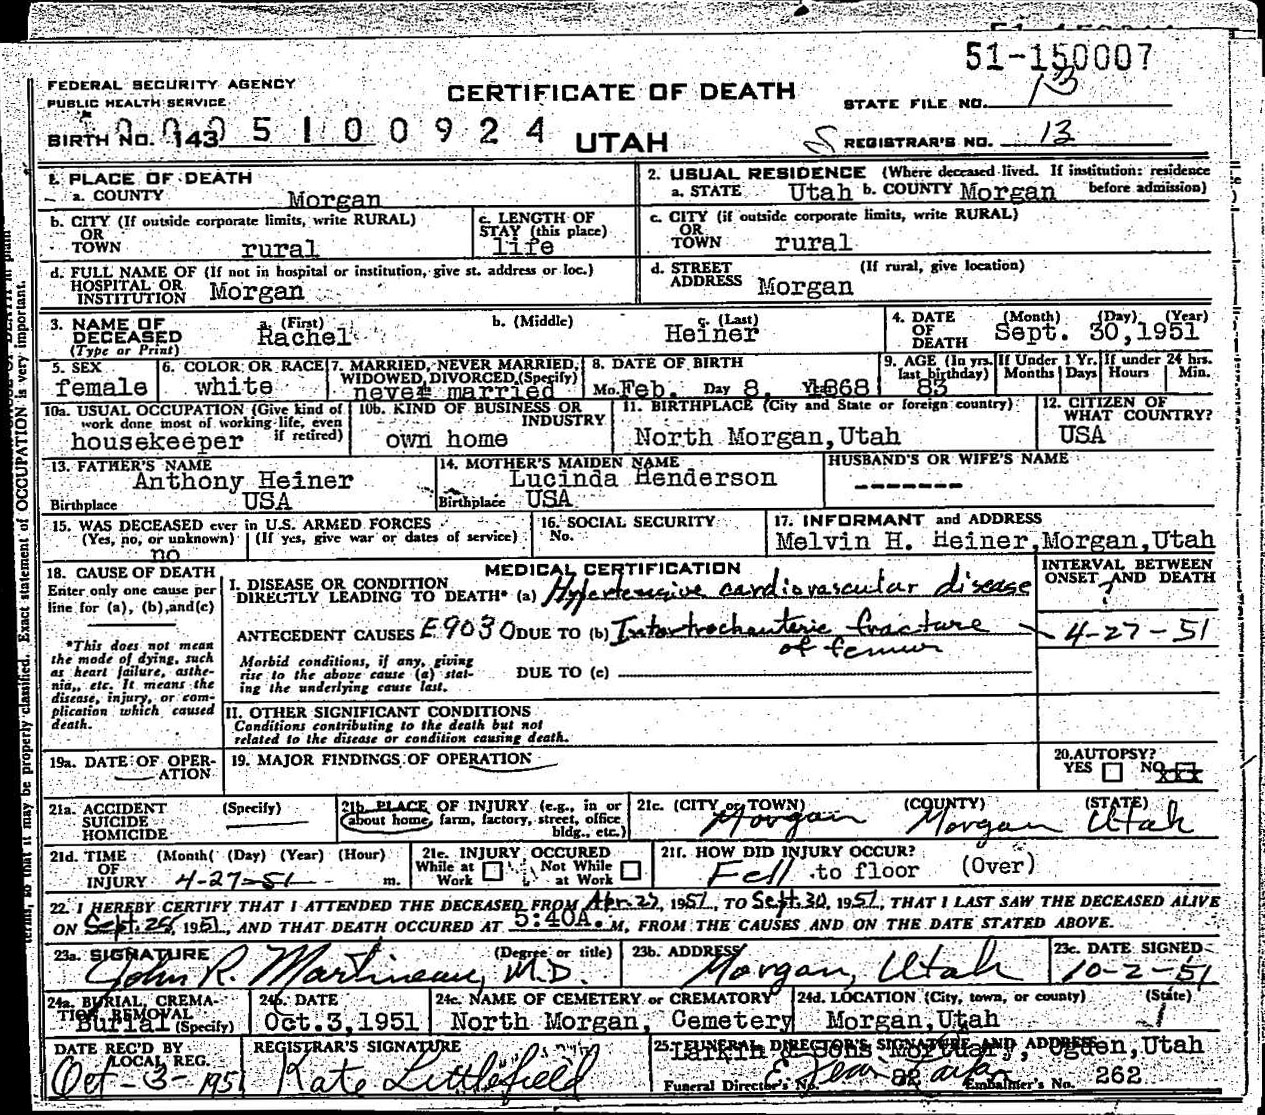 51-150007
FEDERAL SECURITY AGENCY
PUBLIC HEALTH SERVICE
CERTIFICATE OF DEATH
STATE FILE NO. 13
BIRTH NO. 143
0005100924
UTAH
REGISTRAR'S NO. 13
1. PLACE OF DEATH
a. COUNTY Morgan
2. USUAL RESIDENCE (Where deceased lived. If institution: residence before admission)
a. STATE Utah b. COUNTY Morgan
b. CITY (If outside corporate limits, write RURAL)
OR
TOWN rural
c. LENGTH OF
STAY (this place)
life
c. CITY (if outside corporate limits, write RURAL)
OR
TOWN rural
d. FULL NAME OF (If not in hospital or institution, give st. address or loc.)
HOSPITAL OR
INSTITUTION Morgan
d. STREET (If rural, give location)
ADDRESS Morgan
3. NAME OF
DECEASED
(Type or Print)
a. (First) b. (Middle) c. (Last)
Rachel Heiner
4. DATE (Month) (Day) (Year)
OF
DEATH Sept. 30,1951
5. SEX
female
6. COLOR OR RACE
white
7. MARRIED, NEVER MARRIED,
WIDOWED, DIVORCED (Specify)
never married
8. DATE OF BIRTH
Mo. Feb. Day 8, 1868
9. AGE (In yrs. last birthday)
83
If Under 1 Yr.
Months Days
If under 24 hrs.
Hours Min.
10a. USUAL OCCUPATION (Give kind of
work done most of working life, even
if retired)
housekeeper
10b. KIND OF BUSINESS OR
INDUSTRY
own home
11. BIRTHPLACE (City and State or foreign country)
North Morgan,Utah
12. CITIZEN OF
WHAT COUNTRY?
USA
13. FATHER'S NAME
Anthony Heiner
Birthplace USA
14. MOTHER'S MAIDEN NAME
Lucinda Henderson
Birthplace USA
HUSBAND'S OR WIFE'S NAME
-------
15. WAS DECEASED ever in U.S. ARMED FORCES
(Yes, no, or unknown) (If yes, give war or dates of service)
no
16. SOCIAL SECURITY
No.
17. INFORMANT and ADDRESS
Melvin H. Heiner,Morgan,Utah
18. CAUSE OF DEATH
Enter only one cause per
line for (a), (b), and (c)
*This does not mean
the mode of dying, such
as heart failure, asthe-
nia,, etc. It means the
disease, injury, or com-
plication which caused
death.
MEDICAL CERTIFICATION
INTERVAL BETWEEN
ONSET AND DEATH
I. DISEASE OR CONDITION
DIRECTLY LEADING TO DEATH* (a) Hypertensive cardiovascular disease ?
ANTECEDENT CAUSES E9030 DUE TO (b) Intertrochanteric fracture 4-27-51
of femur
Morbid conditions, if any, giving
rise to the above cause (a) stat-
ing the underlying cause last.
DUE TO (c)
II. OTHER SIGNIFICANT CONDITIONS
Conditions contributing to the death but not
related to the disease or condition causing death.
19a. DATE OF OPER-
ATION
19. MAJOR FINDINGS OF OPERATION
20. AUTOPSY?
YES NO
21a. ACCIDENT (Specify)
SUICIDE
HOMICIDE
21b. PLACE OF INJURY (e.g., in or
about home, farm, factory, street, office
bldg., etc.)
21c. (CITY or TOWN) (COUNTY) (STATE)
Morgan Morgan Utah
21d. TIME (Month( (Day) (Year) (Hour)
OF
INJURY 4-27-51 m.
21e. INJURY OCCURED
While at Work Not While at Work
21f. HOW DID INJURY OCCUR?
Fell to floor (Over)
22. I HEREBY CERTIFY THAT I ATTENDED THE DECEASED FROM Apr.27, 1951, TO Sept.30, 1951, THAT I LAST SAW THE DECEASED ALIVE
ON Sept.25, 1951, AND THAT DEATH OCCURED AT 5:40A. M, FROM THE CAUSES AND ON THE DATE STATED ABOVE.
23a. SIGNATURE (Degree or title)
John R. Martineau, M.D.
23b. ADDRESS
Morgan, Utah
23c. DATE SIGNED
10-2-51
24a. BURIAL, CREMA-
TION, REMOVAL
(Specify)
Burial
24b. DATE
Oct.3,1951
24c. NAME OF CEMETERY or CREMATORY
North Morgan, Cemetery
24d. LOCATION (City, town, or county) (State)
Morgan,Utah
DATE REC'D BY
LOCAL REG.
Oct-3-1951
REGISTRAR'S SIGNATURE
Kate Littlefield
25. FUNERAL DIRECTOR'S SIGNATURE AND ADDRESS
Larkin & Sons Mortuary, Ogden,Utah
Funeral Director's No. 82 Embalmer's No. 262
terms, so that it may be properly classified. Exact statement of OCCUPATION is very important.